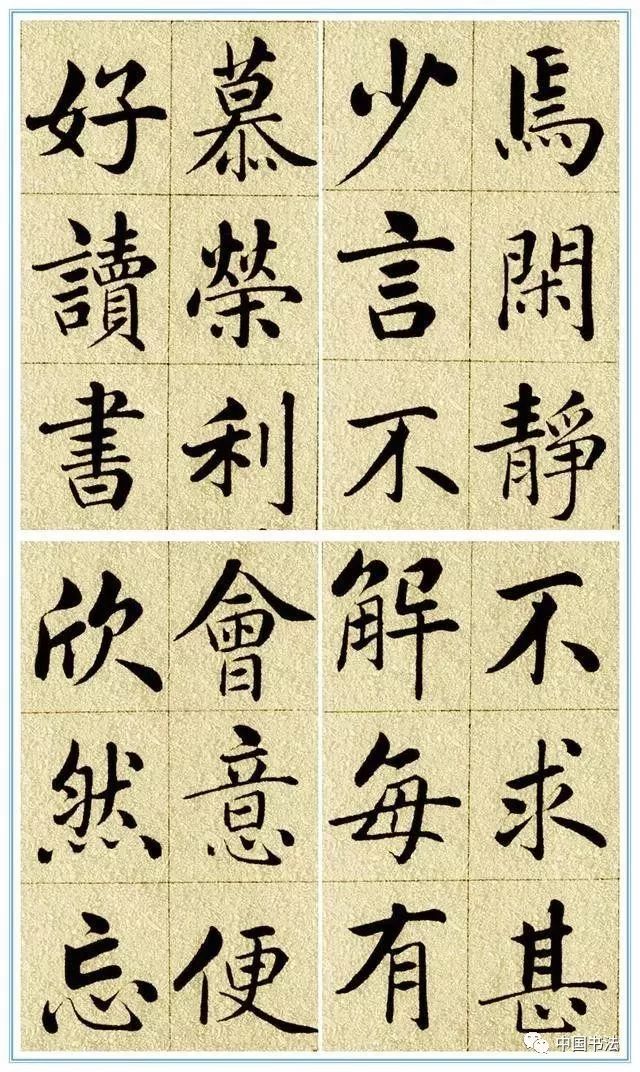 焉閑静
少言不
慕榮利
好讀書
不求甚
解每有
會意便
欣然忘
中国书法